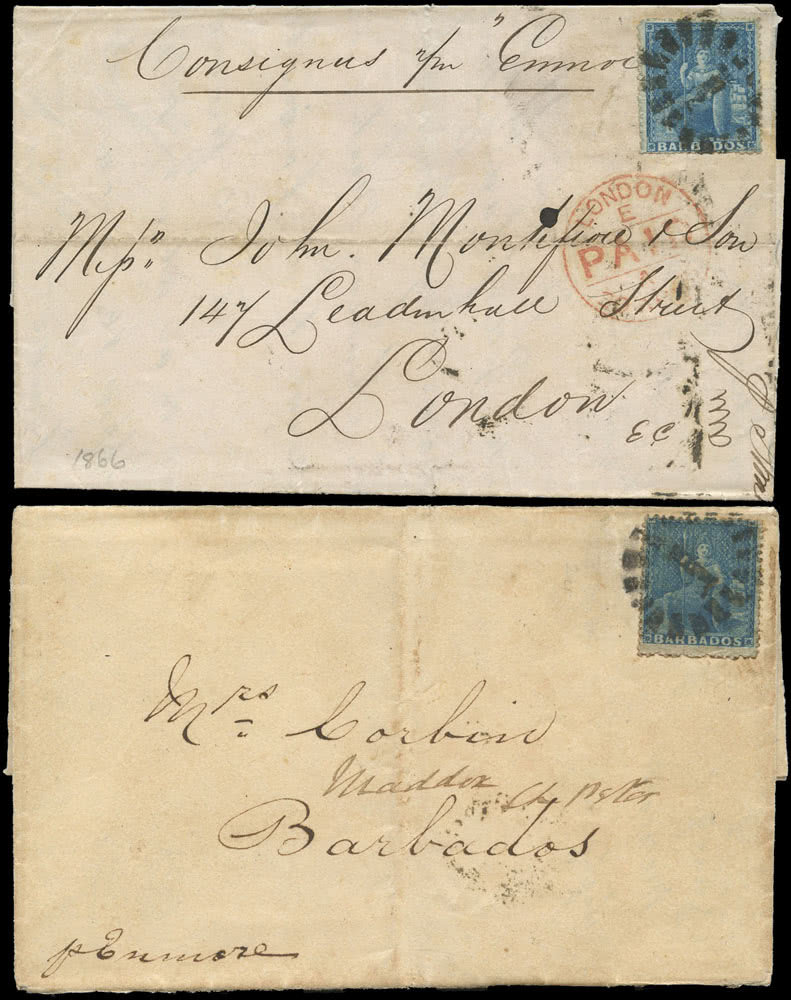 Consignees p/m "Enmore"
BARBADOS
LONDON
E
PAID
Mess John Montefiore & Son
147 Leadenhall Street
London
EC
1866
BARBADOS
Mrs Corbin
Maddox St Peter
Barbados
p Enmore